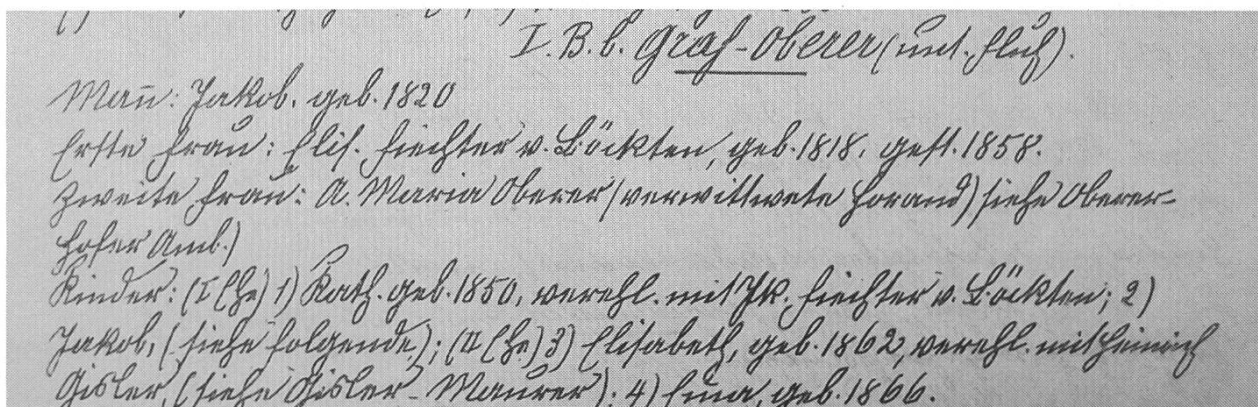 I. B. b. Graf-Oberer (unt. Fluh).
Mañ: Jakob, geb. 1820
Erste Frau: Elis. Fiechter v. Böckten, geb. 1818, gest. 1858.
Zweite Frau: A. Maria Oberer (verwittwete Horand) siehe Oberer-
hofer Amb.)
Kinder: (I Ehe) 1) Kath. geb. 1850, verehl. mit Jk. Fiechter v. Böckten; 2)
Jakob, (siehe folgende); (II Ehe) 3) Elisabeth, geb. 1862, verehl. mit Heinrich
Gisler, (siehe Gisler-Maurer); 4) Emma, geb. 1866.